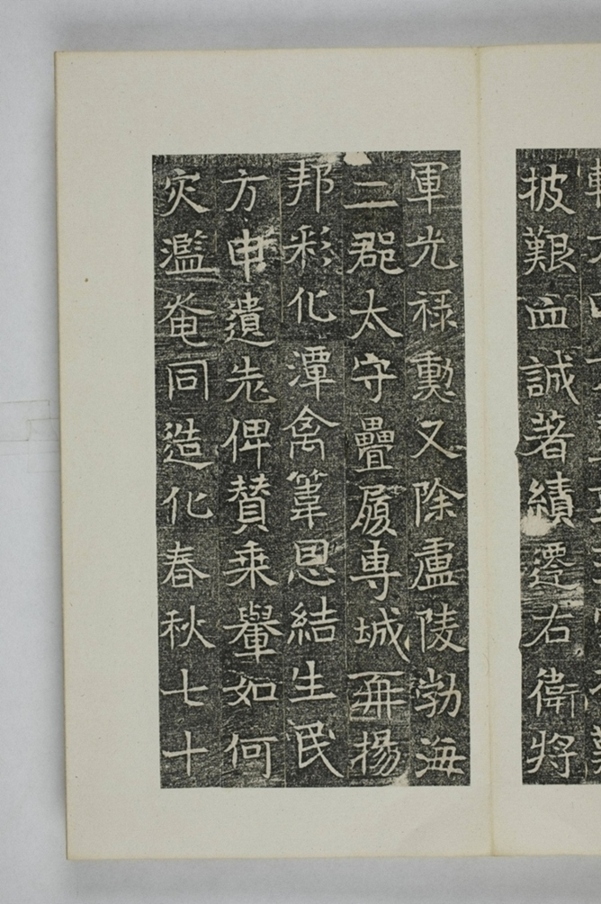 披艱血誠著績遷右衛將
軍光祿勳又除盧陵勃海
二郡太守疊履專城再揚
邦彩化潭禽葦恩結生民
方申遺俾贊乘轝如何
灾濫奄同造化春秋七十